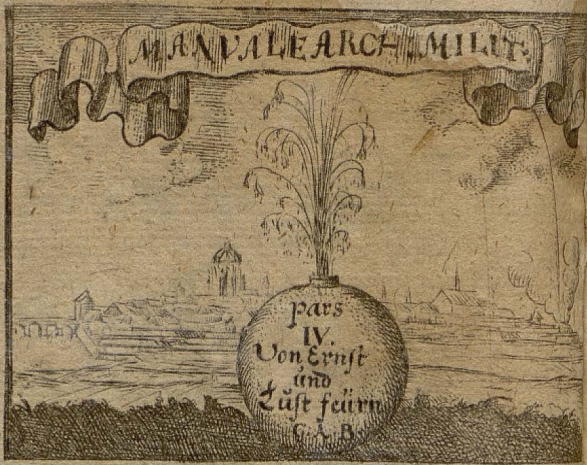 MANVALE ARCH. MILIT.
pars
IV.
Von Ernst
und
Lust feürn
C A B